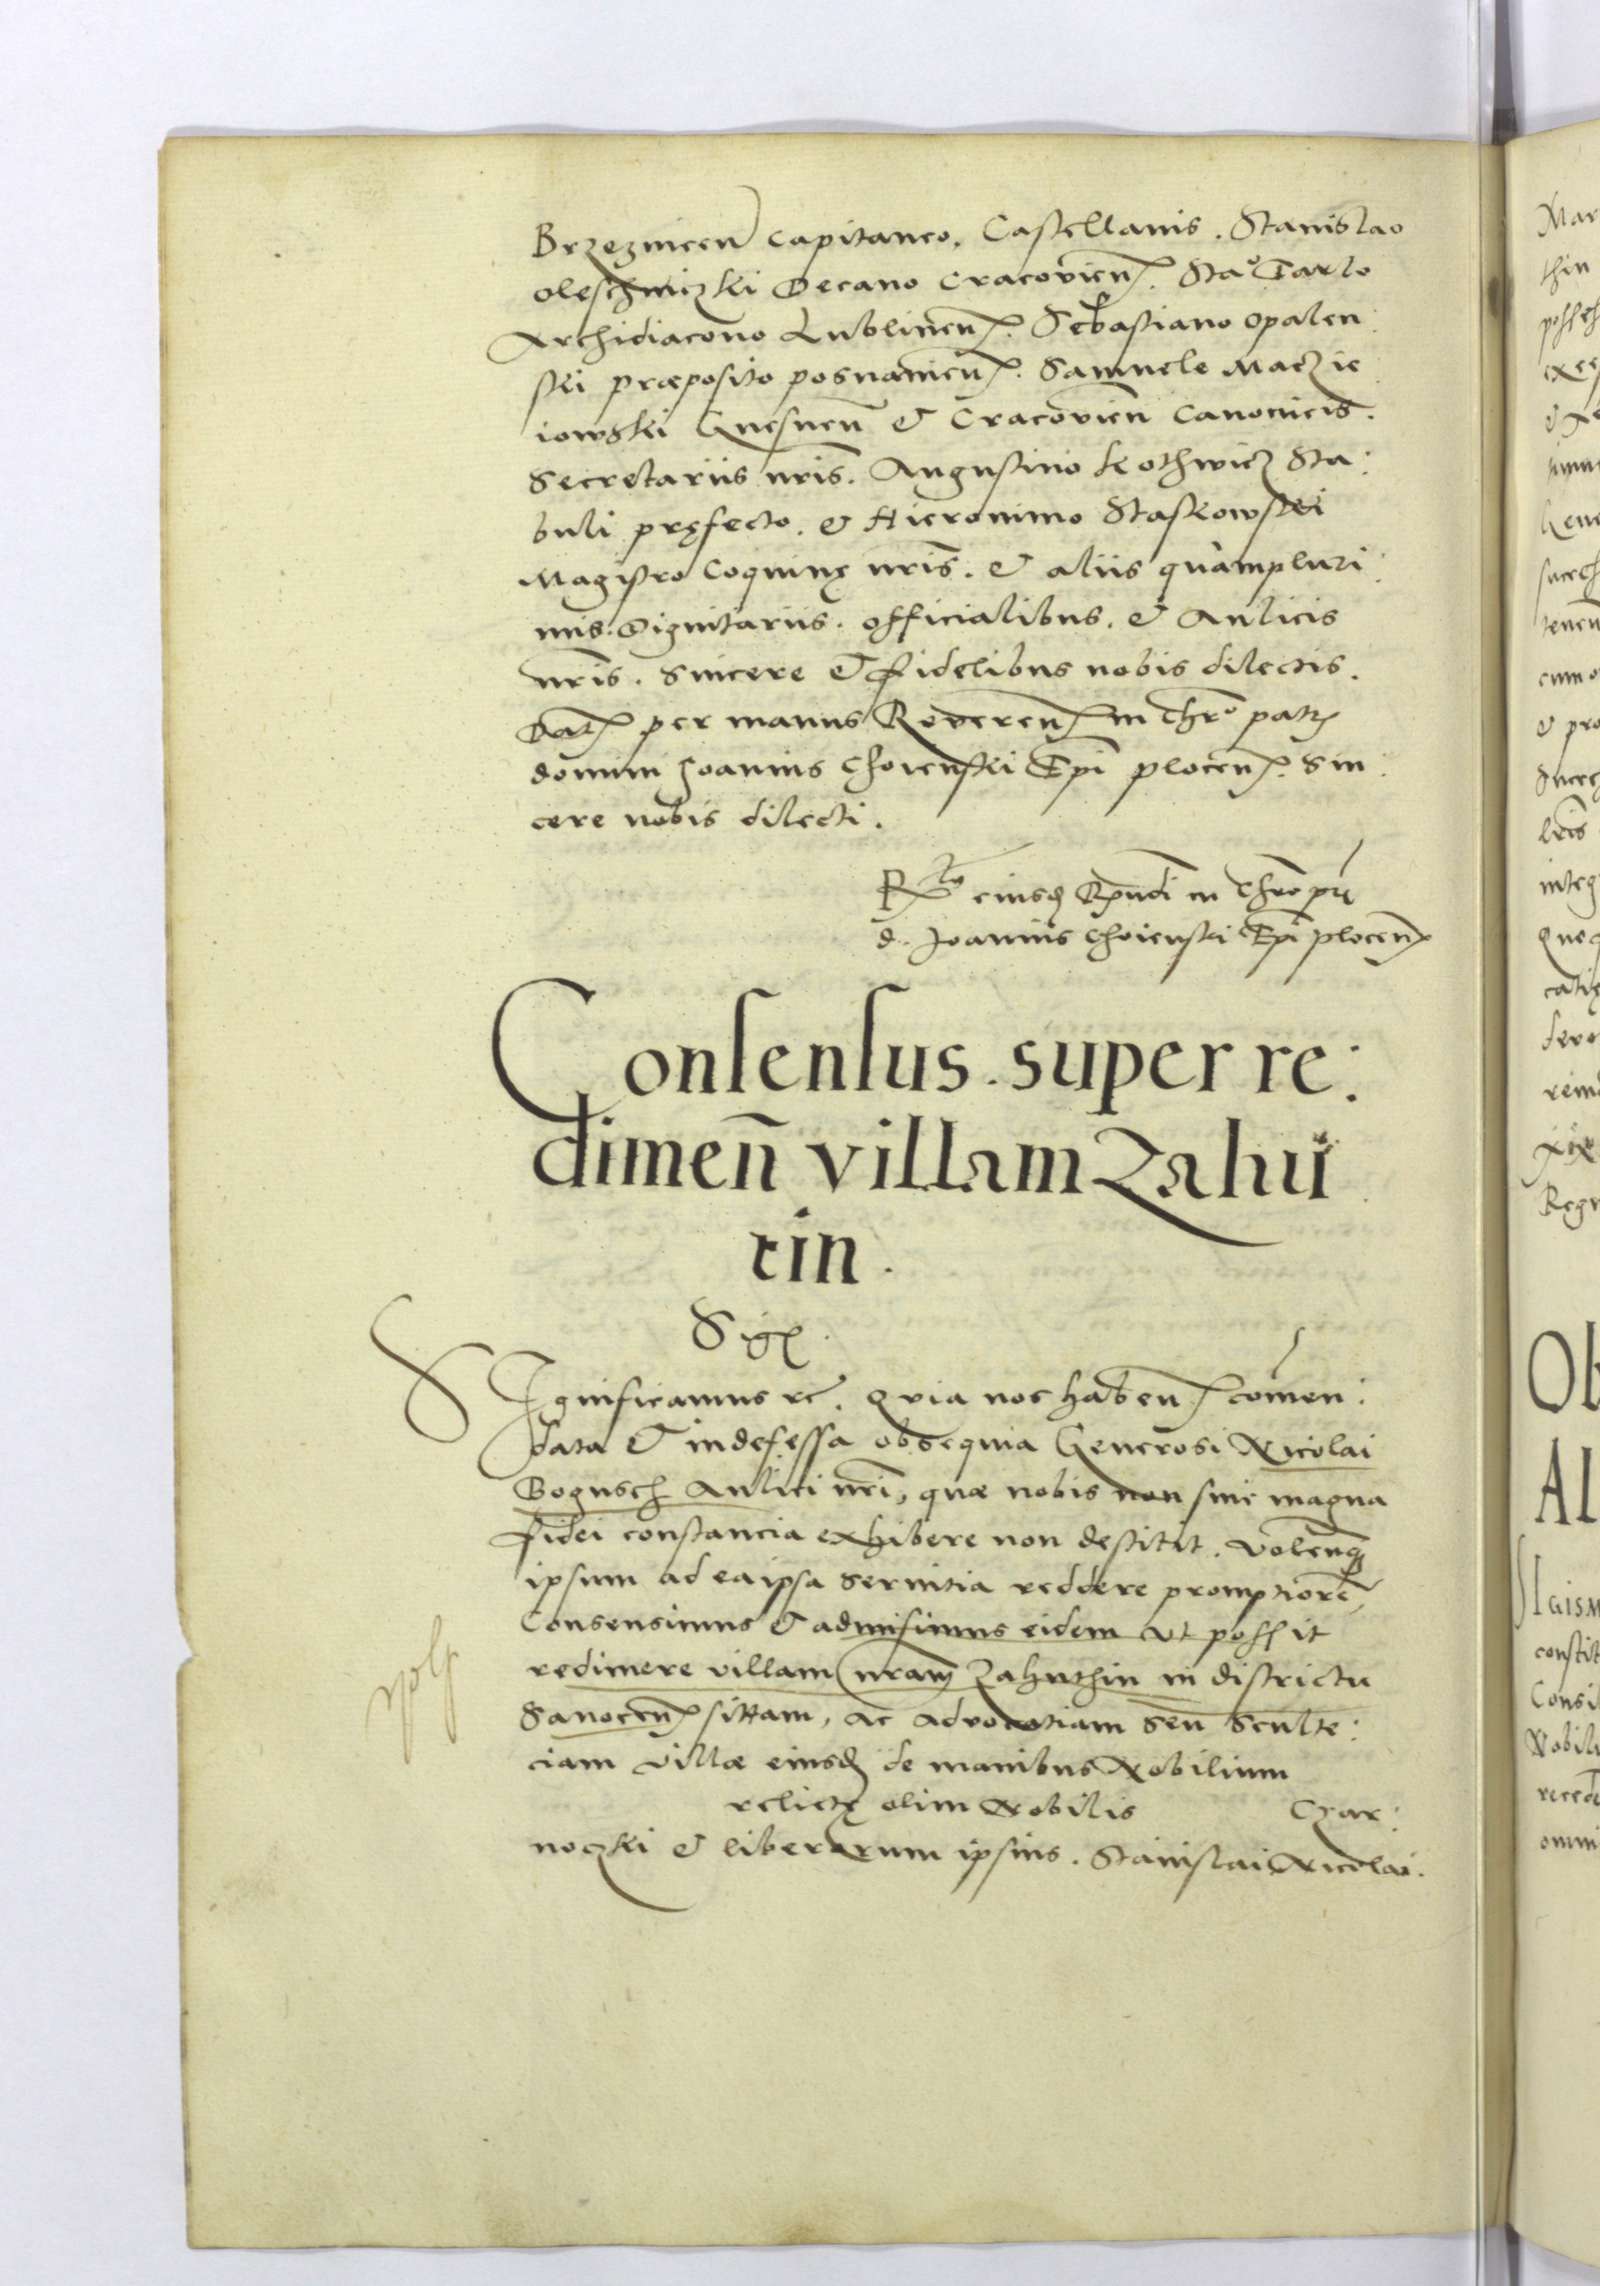 Brzeznicen Capitaneo, Castellanis. Stanislao
Oleschniczki Decano Cracovien. Stao Tarlo
Archidiacono Lublinen. Sebastiano Opalen:
ski præposito posnanien. Samuele Maczie
iowski Gnesnen & Cracovien Canonicis.
Secretariis nris. Augustino Kothwicz Sta:
buli pręfecto. & Hieronimo Staskowski
Magistro Coquinę nris. & aliis quampluri:
mis. Dignitariis. officialibus. & Aulicis
nris. Sincere & fidelibus nobis dilectis.
Dat per manus Reveren in Chro patr
domini Joannis Choienski Epi plocen. Sin:
cere nobis dilecti.
Rlo eiusd Rndi in Chro pr
d. Joannis Choienski Epi plocen
Consensus. super re:
dimen villam Zahu
tin.
Sig
Significamus &c. Quia nos haben comen:
data & indefessa obsequia Generosi Nicolai
Bogusch Aulici nri, quæ nobis non sine magna
fidei constancia exhibere non destitit. Volenq
ipsum ad ea ipsa servitia reddere promptiore
Consensimus & admisimus eidem ut possit
redimere villam nram Zahuthin in districtu
Sanocen sittam, ac advocatiam seu Sculte:
ciam villæ eiusd de manibus Nobilium
relictę olim Nobilis Czar:
noczki & liberorum ipsius. Stanislai, Nicolai.